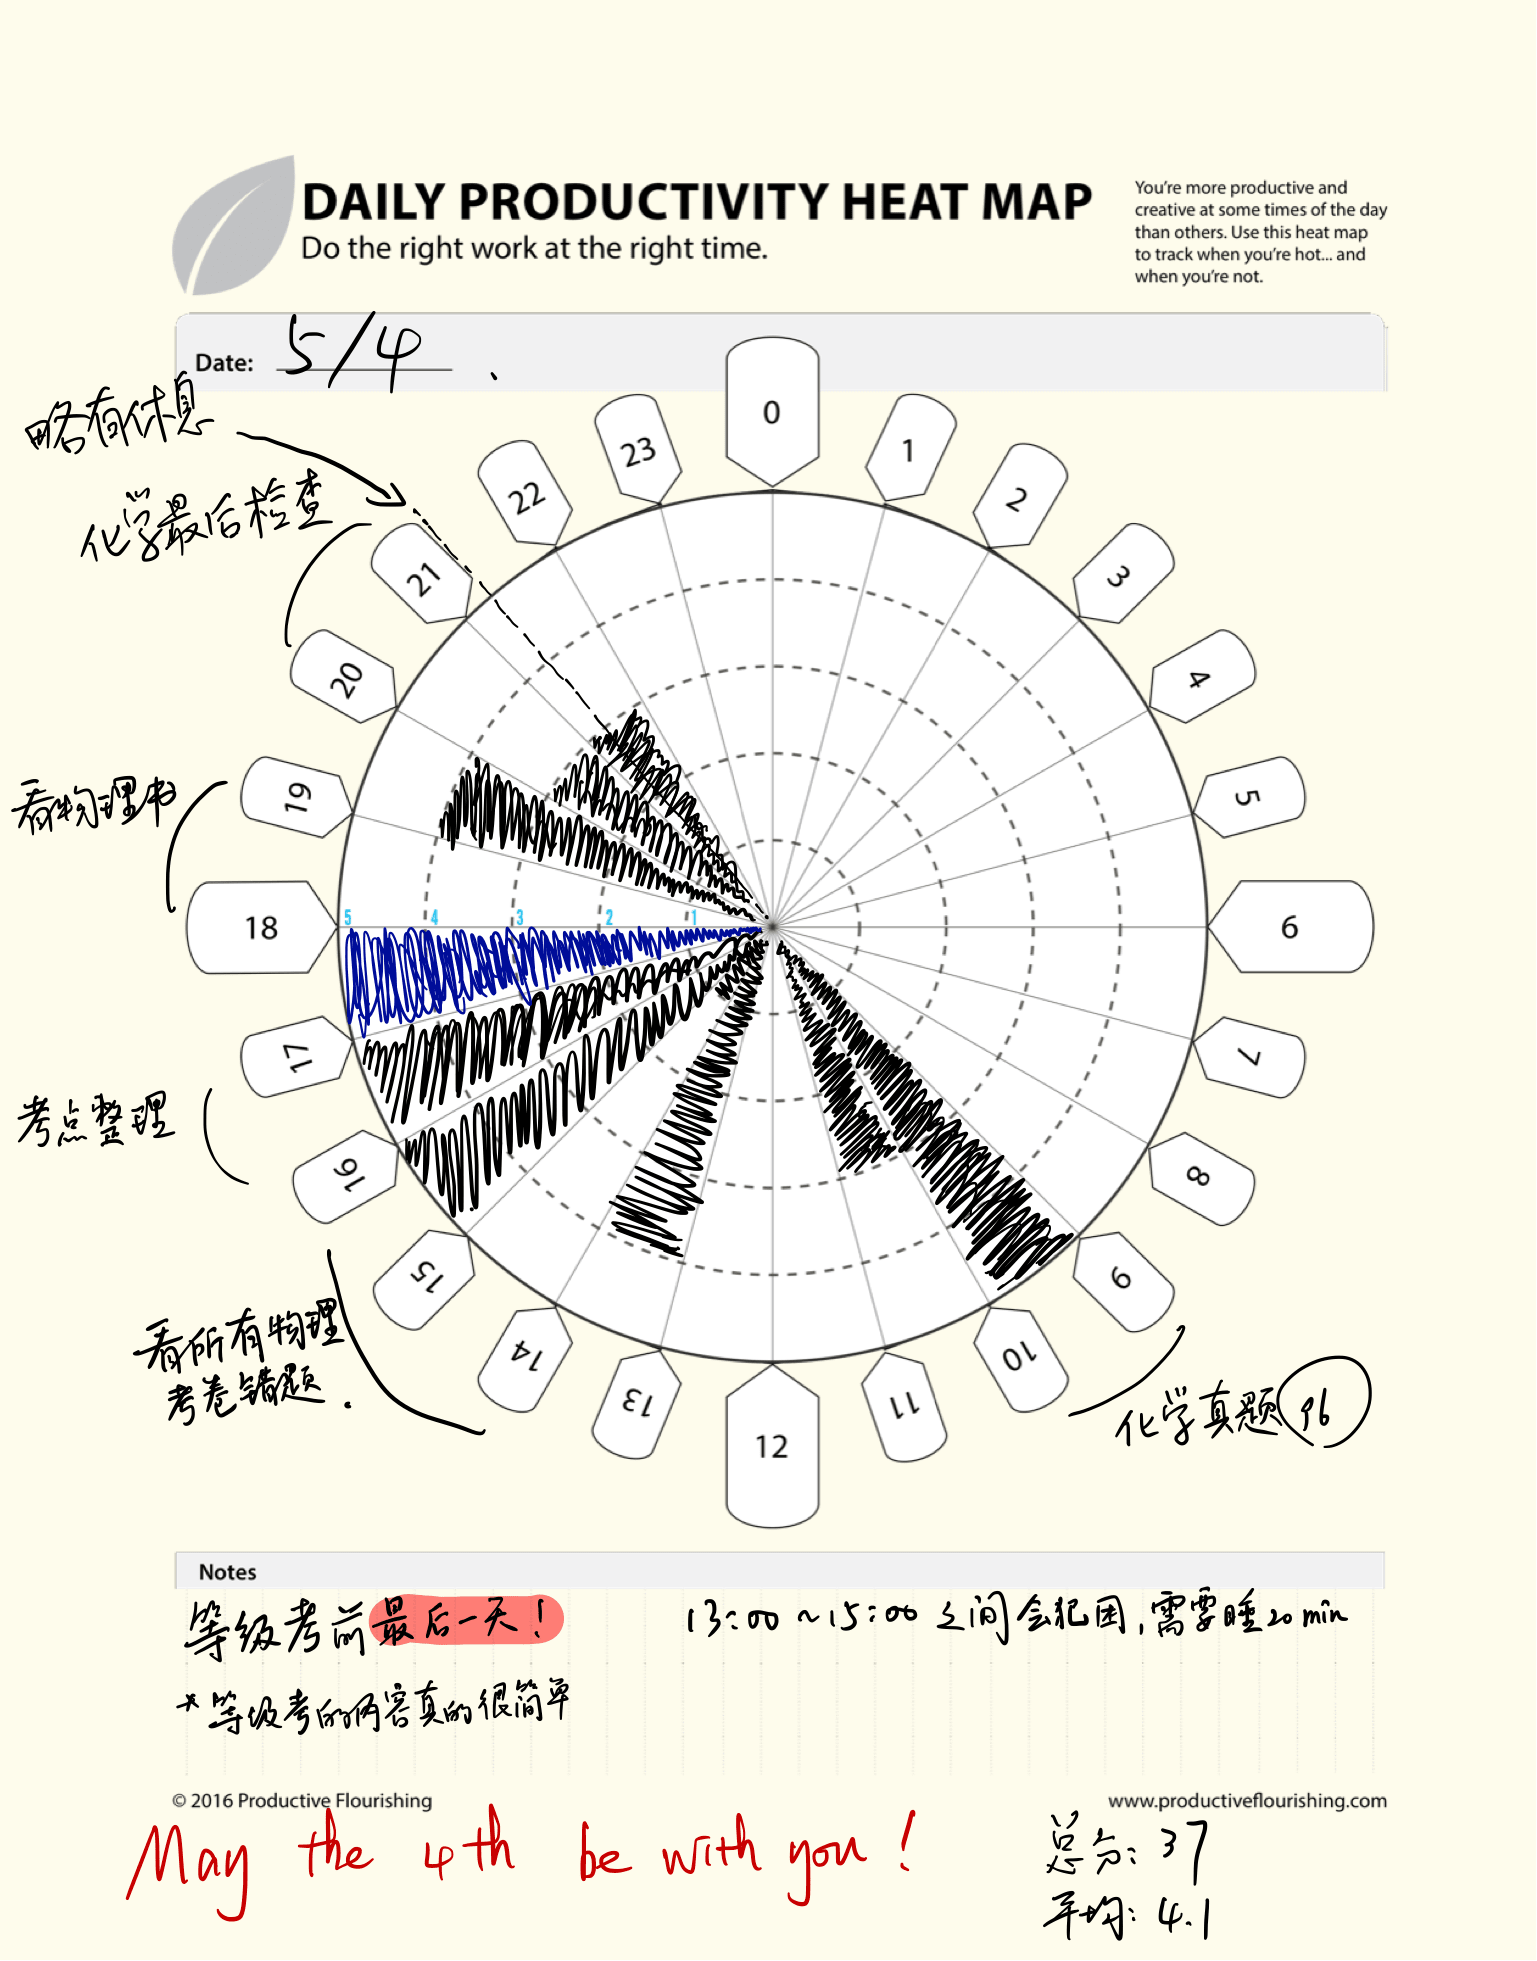 DAILY PRODUCTIVITY HEAT MAP
Do the right work at the right time.
You're more productive and
creative at some times of the day
than others. Use this heat map
to track when you're hot... and
when you're not.
Date: 5/4
略有休息
化学最后检查
看物理书
考点整理
看所有物理
考卷错题.
化学真题 96
0
1
2
3
4
5
6
7
8
9
10
11
12
13
14
15
16
17
18
19
20
21
22
23
5 4 3 2 1
Notes
等级考前最后一天!
13:00 ~15:00 之间会犯困, 需要睡20 min
*等级考的内容真的很简单
© 2016 Productive Flourishing
www.productiveflourishing.com
May the 4th be with you!
总分: 37
平均: 4.1